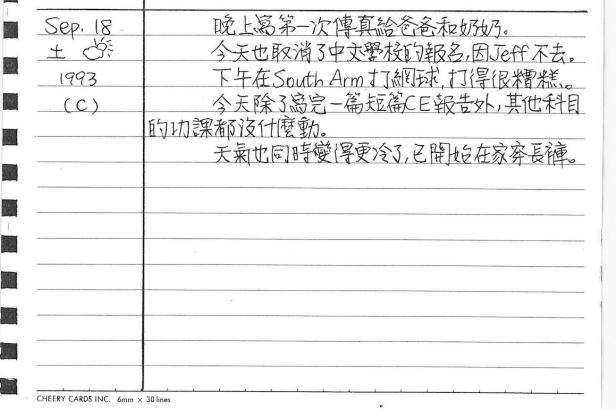 Sep. 18 晚上寫第一次傳真給爸爸和奶奶。
土 今天也取消了中文學校的報名,因Jeff不去。
1993 下午在South Arm打網球,打得很糟糕、。
(C) 今天除了寫完一篇短篇CE報告外,其他科目
的功課都沒什麼動。
天氣也同時變得更冷了,已開始在家穿長褲。
CHEERY CARDS INC. 6mm × 30 lines